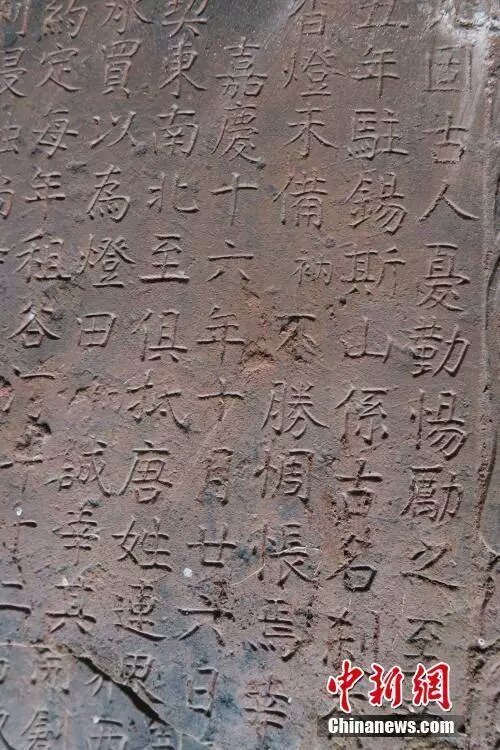 因古人憂勤惕勵之至
丑年駐錫斯山係古名刹
香燈未備衲不勝惆悵焉幸
嘉慶十六年十月廿六日
契東南北至俱抵唐姓連
承買以為燈田衲誠幸其
約定每年租谷
中新网
Chinanews.com